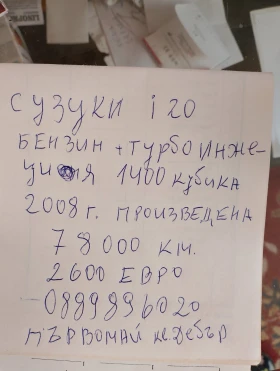 СУЗУКИ i 20
БЕНЗИН + ТУРБО ИНЖЕ-
ЦИЯ 1400 КУБИКА
2008 г. ПРОИЗВЕДЕНА
78000 КМ.
2600 ЕВРО
0899896020
ПЪРВОМАЙ кв. Дебър